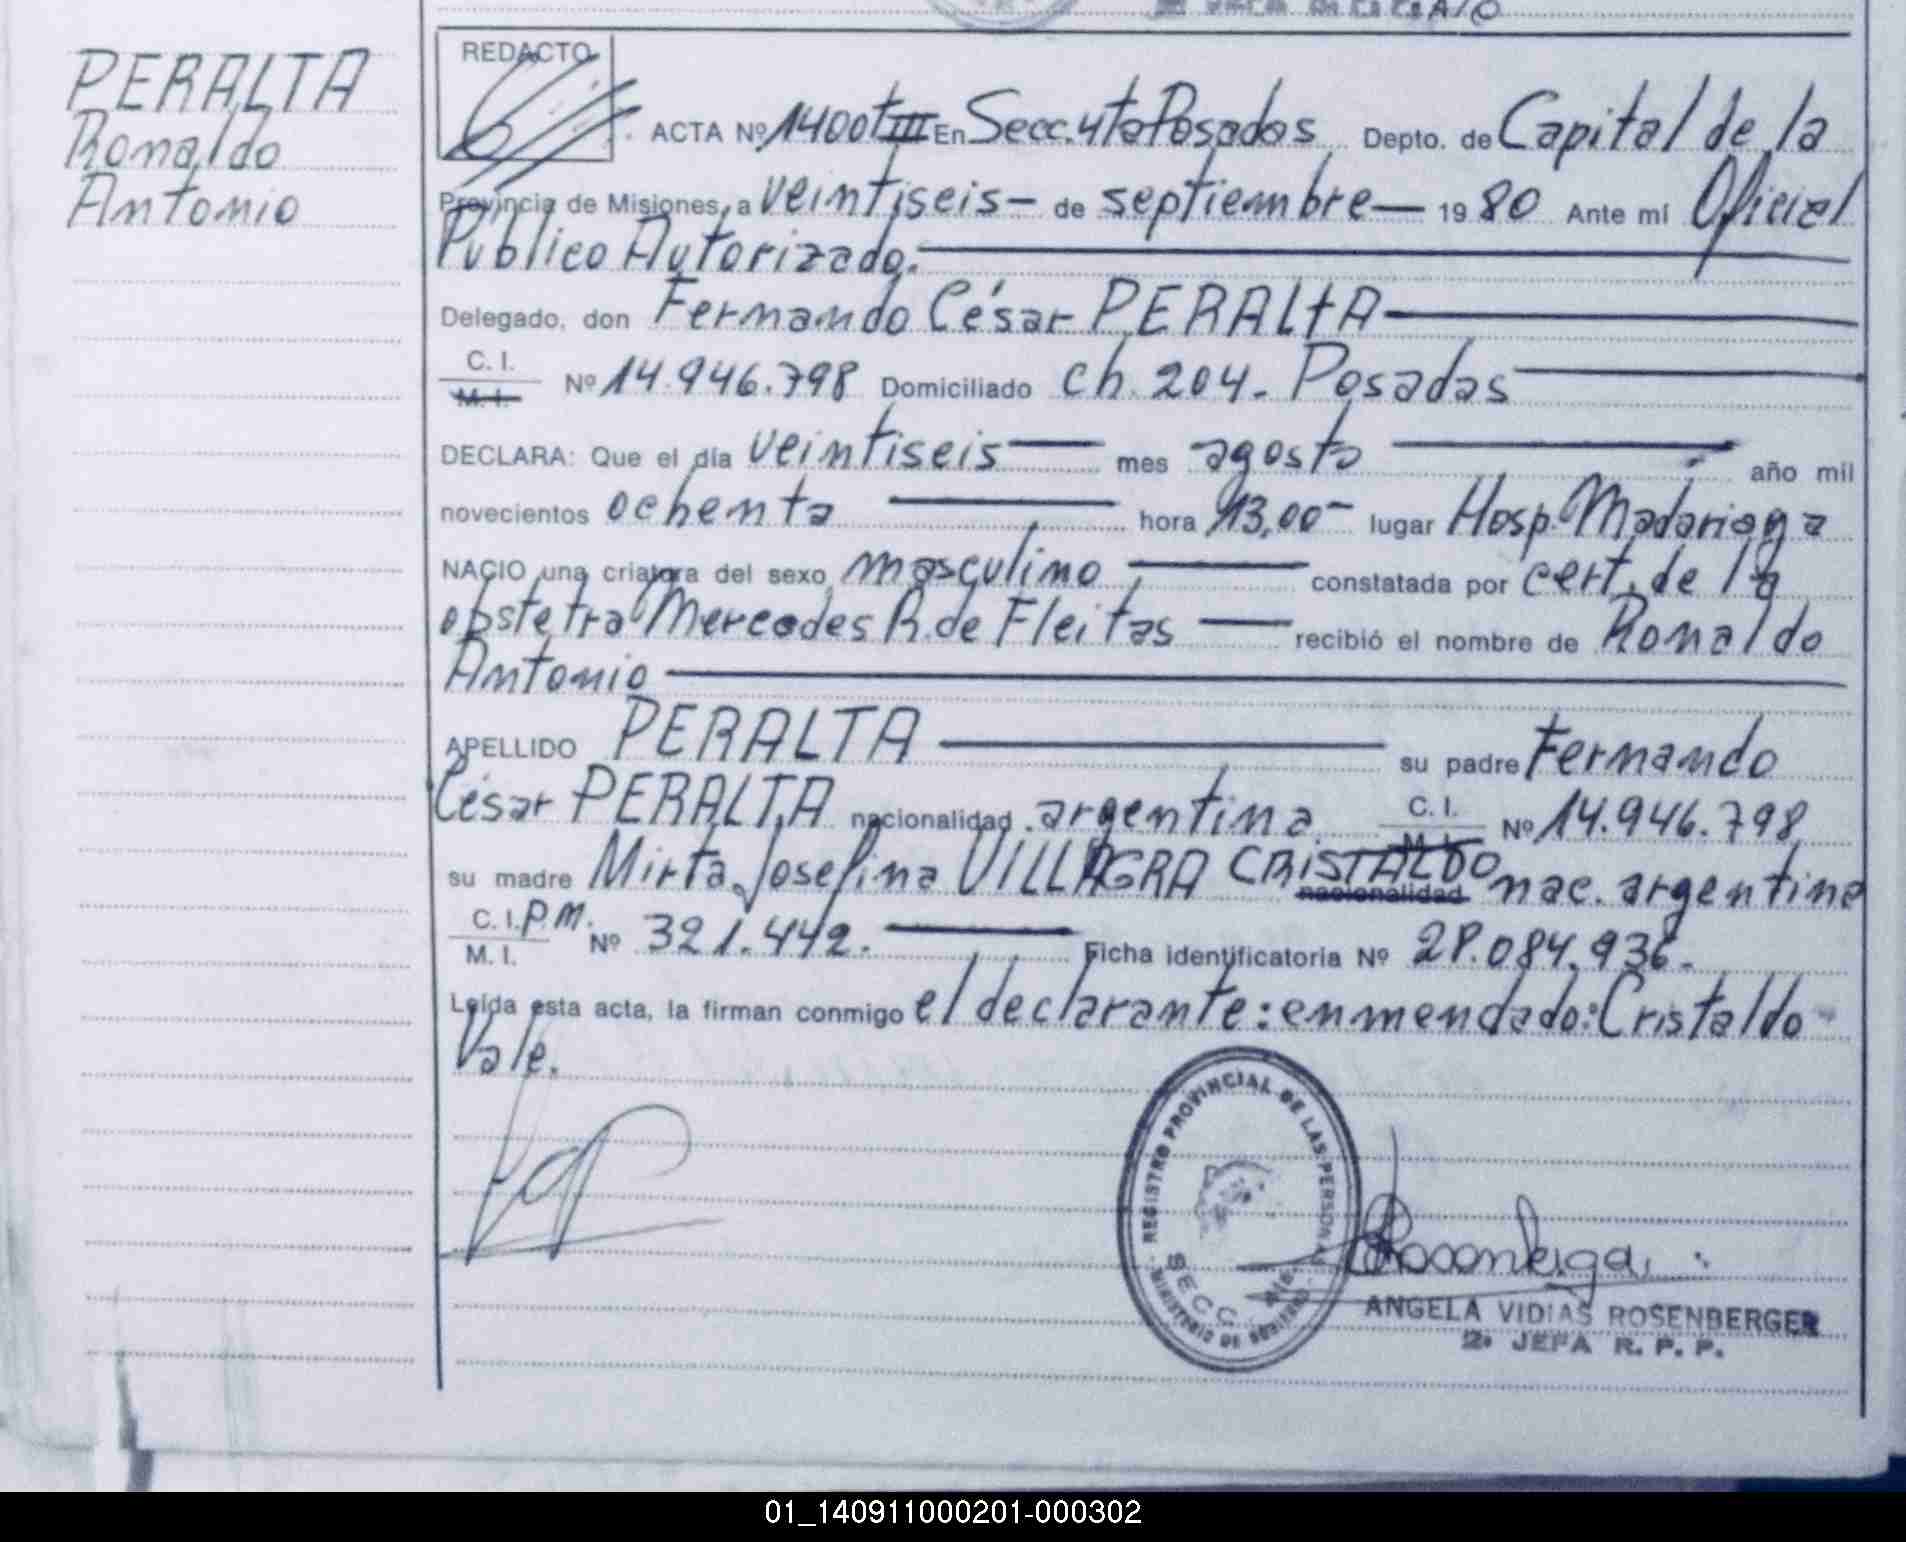 PERALTA
Ronaldo
Antonio
REDACTO
ACTA Nº 1400 t III En Secc. 4ta Posadas Depto. de Capital de la
Provincia de Misiones, a veintiseis- de septiembre- 19 80 Ante mí Oficial
Público Autorizado.
Delegado, don Fernando César PERALTA
C. I.
M. I.
Nº 14.946.798 Domiciliado ch. 204. Posadas
DECLARA: Que el día veintiseis mes agosto año mil
novecientos ochenta hora 13,00- lugar Hosp. Madariaga
NACIO una criatura del sexo masculino, constatada por cert. de la
obstetra Mercedes R. de Fleitas recibió el nombre de Ronaldo
Antonio
APELLIDO PERALTA su padre Fernando
César PERALTA nacionalidad argentina C. I. Nº 14.946.798
M. I.
su madre Mirta Josefina VILLAGRA CRISTALDO nacionalidad nac. argentina
C. I. P.M. Nº 321.442. Ficha identificatoria Nº 28.084.936-
M. I.
Leída esta acta, la firman conmigo el declarante: enmendado: Cristaldo
Vale.
REGISTRO PROVINCIAL DE LAS PERSONAS
MINISTERIO DE GOBIERNO
SECC.
ANGELA VIDIAS ROSENBERGER
2º JEFA R. P. P.
01_140911000201-000302